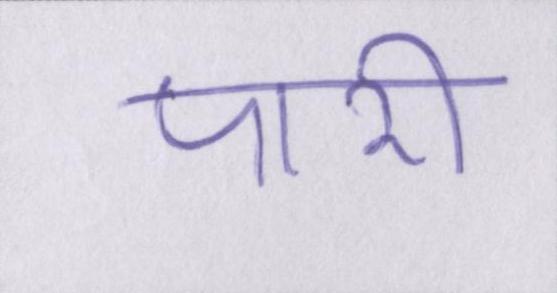 पारी